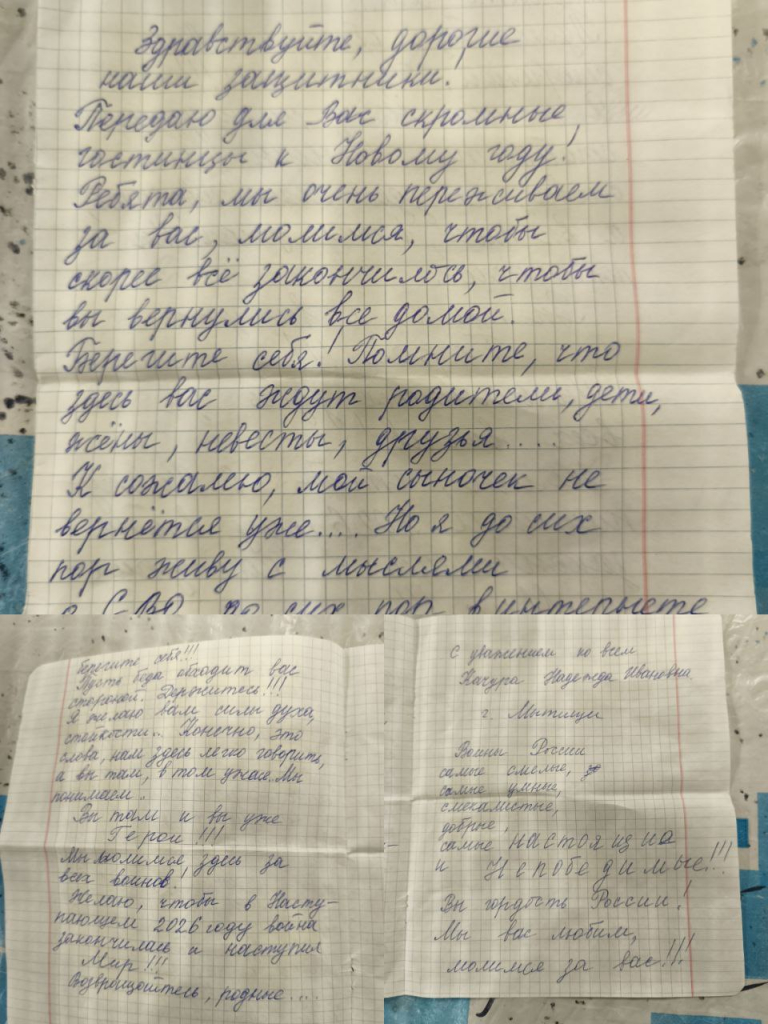 Здравствуйте, дорогие
наши защитники.
Передаю для Вас скромные
гостинцы к Новому году!
Ребята, мы очень переживаем
за вас, молимся, чтобы
скорее всё закончилось, чтобы
вы вернулись все домой.
Берегите себя! Помните, что
здесь вас ждут родители, дети,
жёны, невесты, друзья....
К сожалению, мой сыночек не
вернётся уже.... Но я до сих
пор живу с мыслями
о СВО, до сих пор в интернете
берегите себя!!!
Пусть беда обходит вас
стороной. Держитесь!!!
Я желаю вам силы духа,
стойкости.. Конечно, это
слова, нам здесь легко говорить,
а вы там, в том ужасе. Мы
понимаем.
Вы там и вы уже
Герои!!!
Мы молимся здесь за
всех воинов!
Желаю, чтобы в Насту-
пающем 2026 году война
закончилась и наступил
Мир!!!
Возвращайтесь, родные....
С уважением ко всем
Качура Надежда Ивановна
г. Мытищи
Воины России
самые смелые,
самые умные,
смекалистые,
добрые,
самые
и Непобедимые!!!
Вы гордость России!
Мы вас любим,
молимся за вас!!!